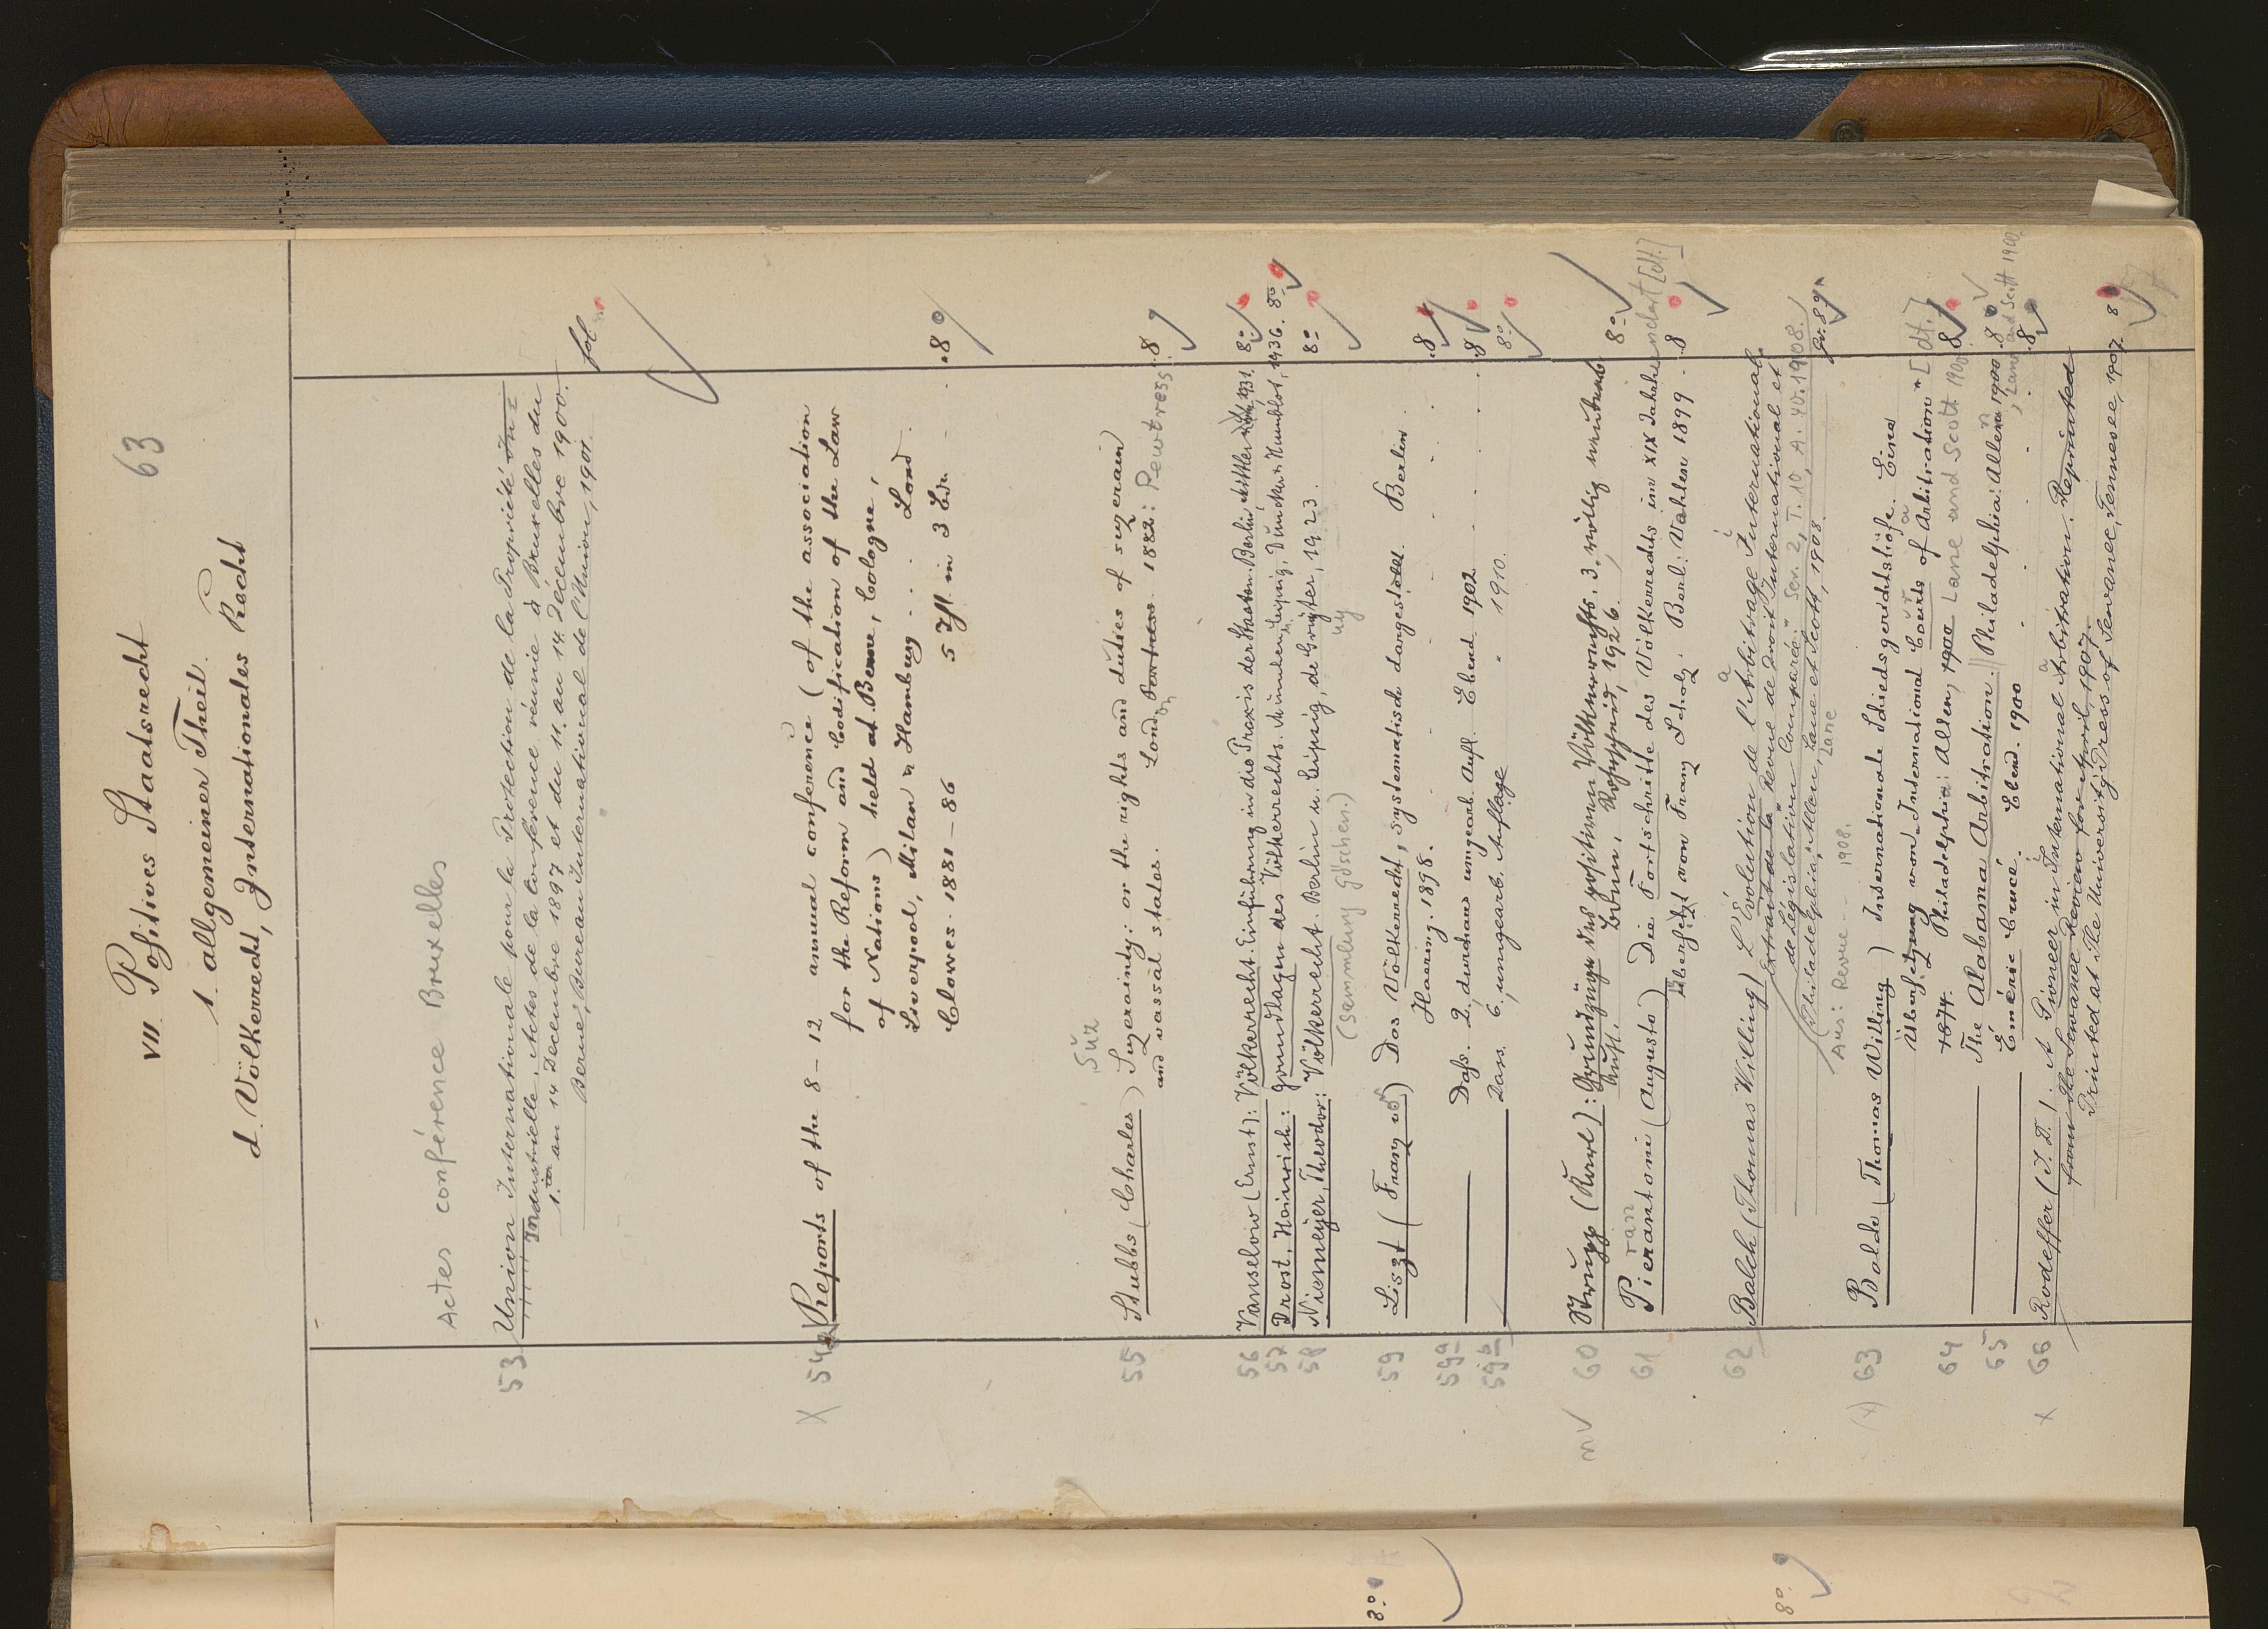 63
VII Positives Staatsrecht
1. allgemeiner Theil.
d. Völkerrecht, Internationales Recht
Actes conférence Bruxelles
53 Union Internationale pour la Protection de la Propriété In=
Industrielle. Actes de la Conférence réunie à Bruxelles du
1. au 14 Decembre 1897 et du 11. au 14. Décembre 1900.
Berne, Bureau International de l'Union, 1901. fol.
X 54 Reports of the 8-12 annual conference (of the association
for the Reform and Codification of the Law
of Nations) held at Berne, Cologne,
Liverpool, Milan u Hamburg . . . Lond.
Clowes. 1881-86 5 Hft. in 3 Bde. 8°
Süz
55 Stubbs (Charles) Suzerainty: or the rights and duties of suzerain
and vassal states. Lond. 1882: Pewtress. 8
56 Vanselow (Ernst): Völkerrecht. Einführung in die Praxis der Staaten. Berlin, Mittler 1931. 8°
57 Drost, Heinrich: Grundlagen des Völkerrechts. München u. Leipzig, Duncker u. Humblot, 1936. 8°
58 Niemeyer, Theodor: Völkerrecht. Berlin u. Leipzig, de Gruyter, 1923. 8°
uy
(Sammlung Göschen.)
59 Liszt (Franz v.) Das Völkerrecht, systematisch dargestellt. Berlin
Haering. 1898. 8
59a — Dass. 2., durchaus umgearb. Aufl. Ebend. 1902 8
59b — Dass. 6., umgearb. Auflage " 1910. 8°
mV 60 Strupp (Karl): Grundzüge des positiven Völkerrechts. 3., völlig erneute
Aufl. Bonn, Röhrscheid, 1926. 8°
ran
61 Pierantoni (Augusto) Die Fortschritte des Völkerrechts im XIX Jahrhundert [dt.]
Übersetzt von Franz Scholz. Berl: Vahlen 1899. 8
62 Balch (Thomas Willing) L'Évolution de l'Arbitrage International.
Extrait de la "Revue de Droit International et
de Législation Comparée." Ser. 2, T. 10, A. 40. 1908.
Philadelphia; Allen, Lane et Scott, 1908. gr. 8°
Lane
Aus: Revue... 1908.
(x) 63 Balch (Thomas Willing) Internationale Schiedsgerichtshöfe. Eine
Übersetzung von "International Courts of Arbitration" [dt.]
1874. Philadelphia: Allen, 1900 Lane and Scott 1900. 8
64 — The Alabama Arbitration. Philadelphia: Allen 1900. 8
, Lane and Scott 1900.
65 — Éméric Crucé. Ebend. 1900 . . . . 8
x 66 Rodeffer (J. D.). A Pioneer in International Arbitration. Reprinted
from the Sewanee Review for April, 1907.
Printed at the University Press of Sewanee, Tennesee, 1907 8
8°
8°